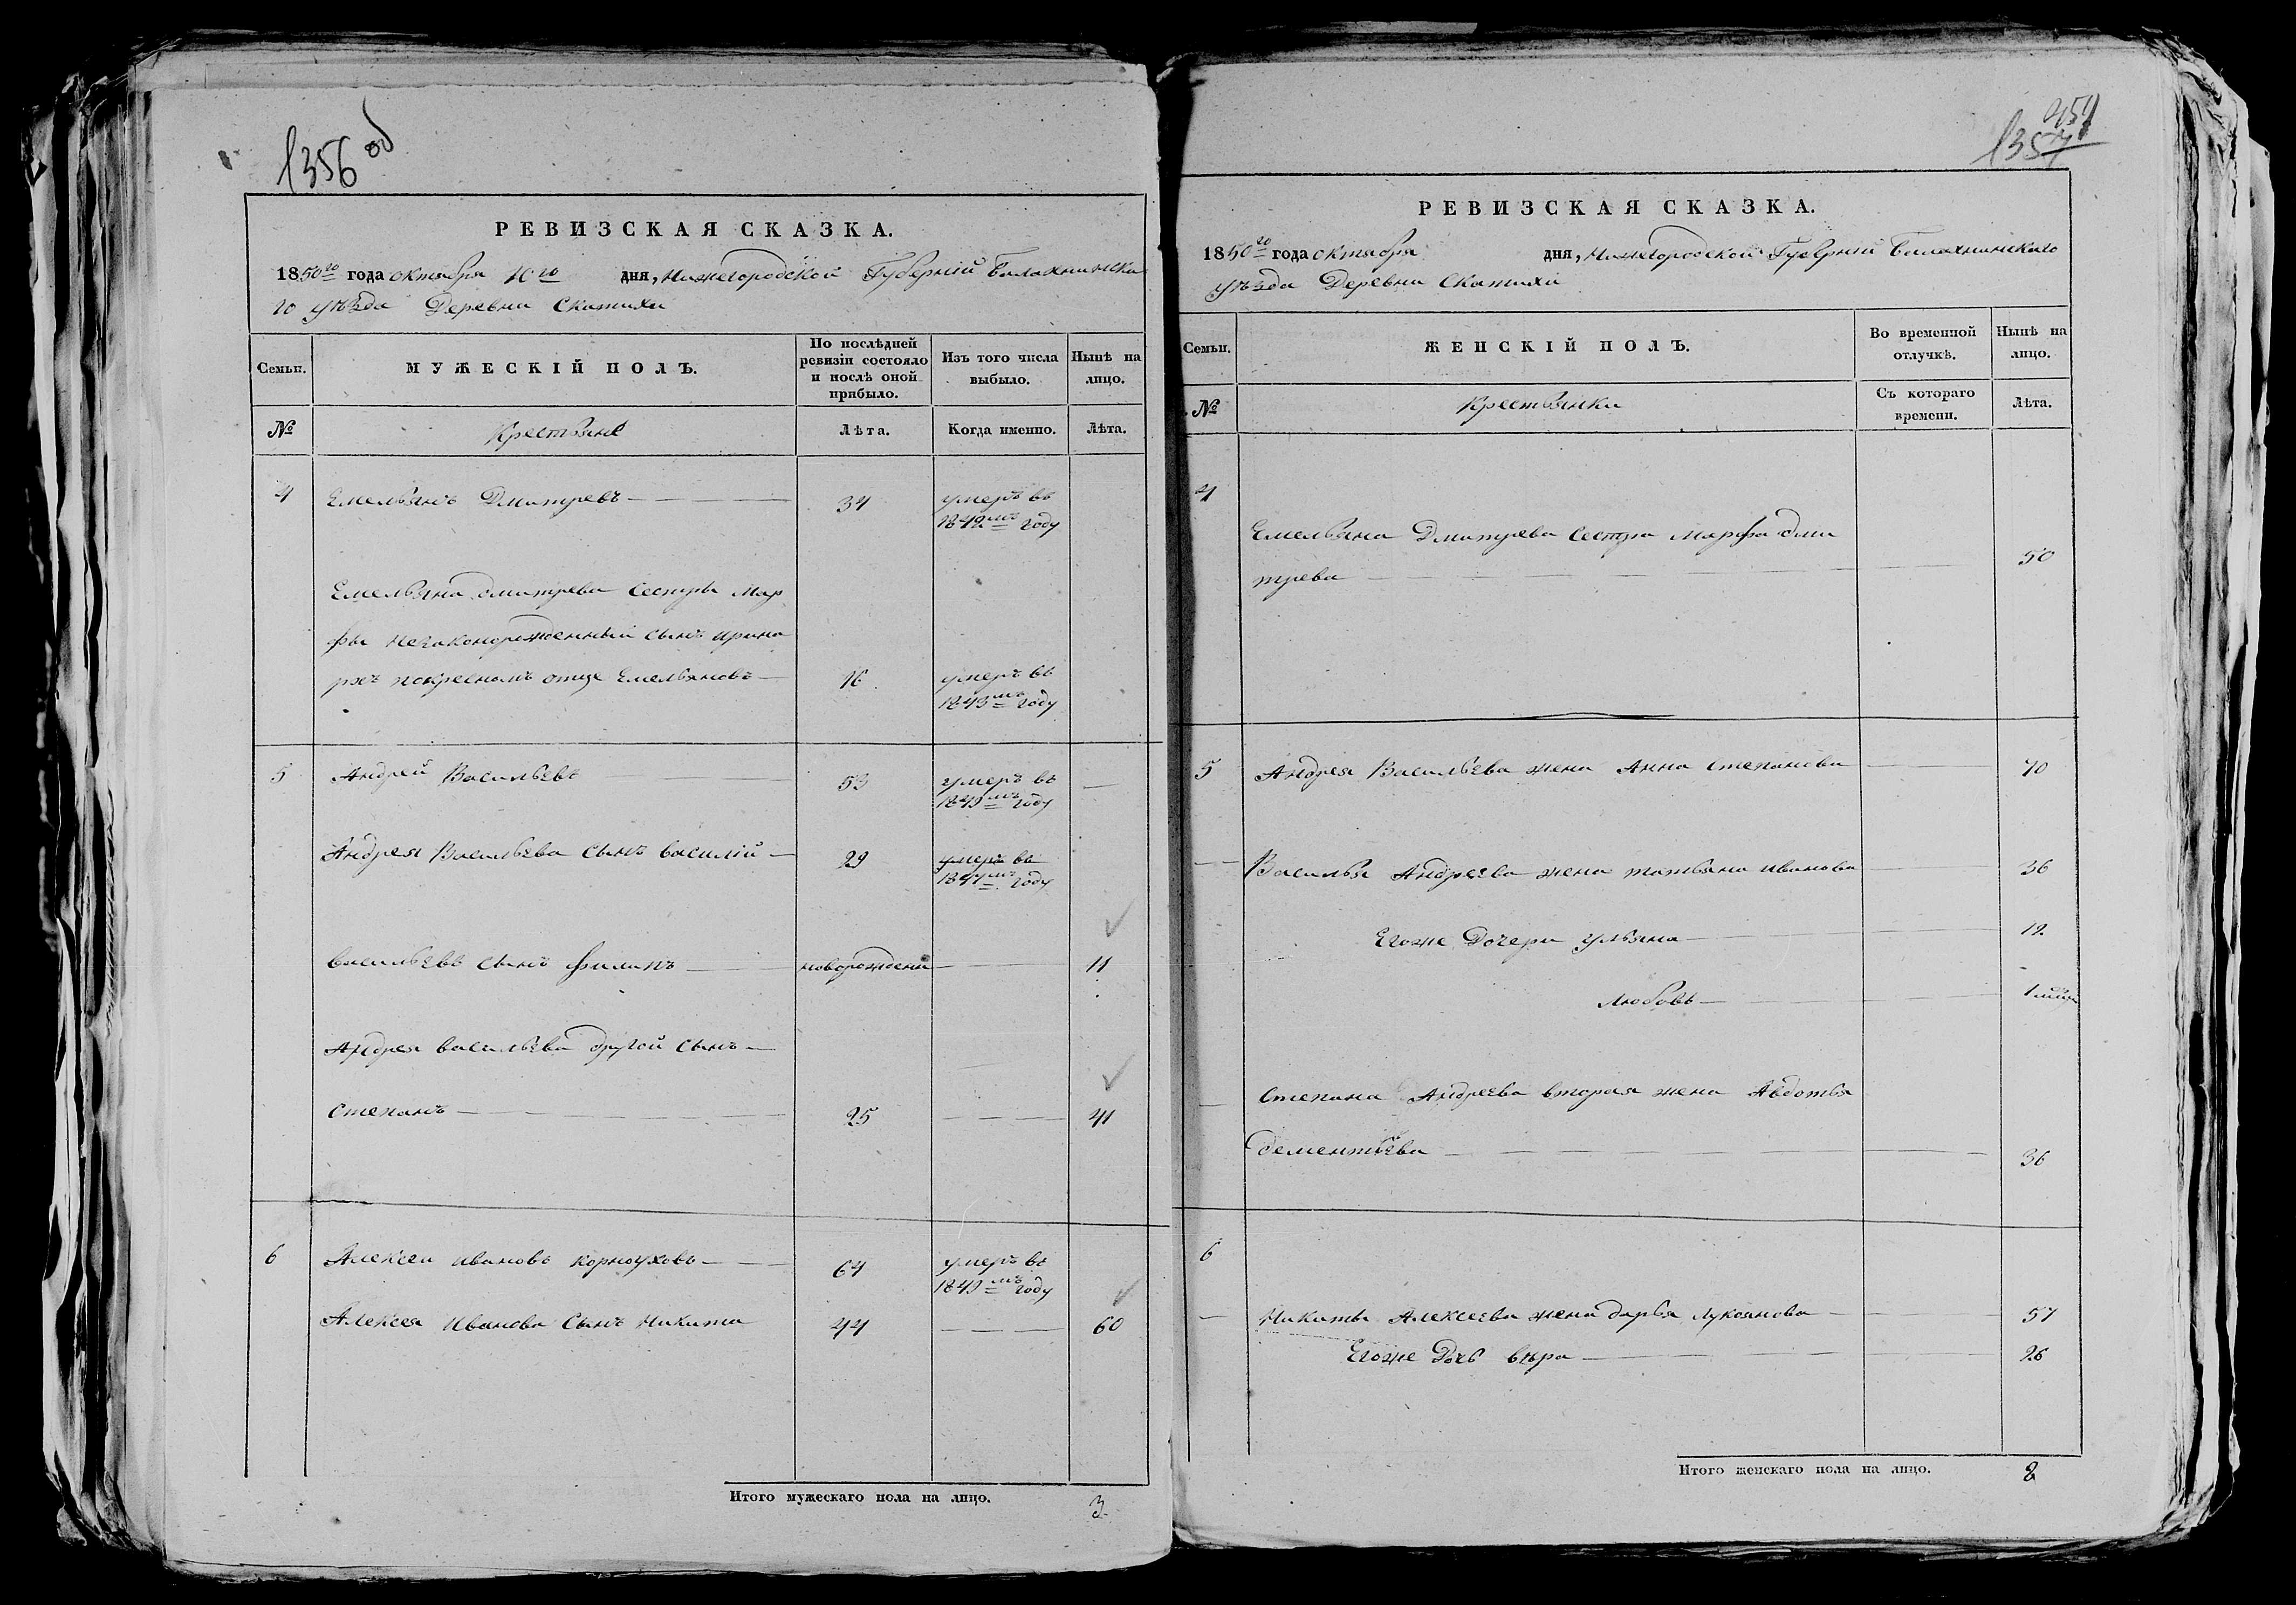 1356 об
РЕВИЗСКАЯ СКАЗКА.
1850го года октября 10го дня, Нижегородской Губерніи Балахнинска
го уѣзда Деревни Скатихи
Семьи.
МУЖЕСКІЙ ПОЛЪ.
По послѣдней ревизіи состояло и послѣ оной прибыло.
Изъ того числа выбыло.
Нынѣ на лицо.
№
Крестьяне
Лѣта.
Когда именно.
Лѣта.
4 Емельянъ Дмитревъ 34 умеръ въ
1842мъ году
Емельяна дмитрева сестры Мар
фы незаконорожденный сынъ ирина
рхъ покресномъ отце Емельяновъ 16 умеръ въ
1843мъ году
5 Андрей Васильевъ 53 умеръ въ
1849мъ году
Андрея Васильева сынъ василій 29 умеръ въ
1847мъ году
васильевъ сынъ филипъ новорожденъ 11
Андрея васильева другой сынъ
Степанъ 25 41
6 Алексеи ивановъ корноуховъ 64 умеръ въ
1849мъ году
Алексея Иванова сынъ Никита 44 60
Итого мужескаго пола на лицо. 3
1357
РЕВИЗСКАЯ СКАЗКА.
1850го года октября дня, Нижегородской Губерніи Балахнинскаго
уѣзда Деревни Скатихи
Семьи.
ЖЕНСКІЙ ПОЛЪ.
Во временной отлучкѣ.
Нынѣ на лицо.
№
Крестьянки
Съ котораго времени.
Лѣта.
4
Емельяна Дмитрева сестра Марфа дми
трева 50
5 Андрея Васильева жена Анна степанова 70
Василья Андреева жена татьяна иванова 36
Егоже Дочери ульяна 12
любовь 1
Степана Андреева вторая жена Авдотья
дементьева 36
6
Никиты Алексеева жена дарья лукоянова 57
Егоже Дочь вѣра 26
Итого женскаго пола на лицо. 8